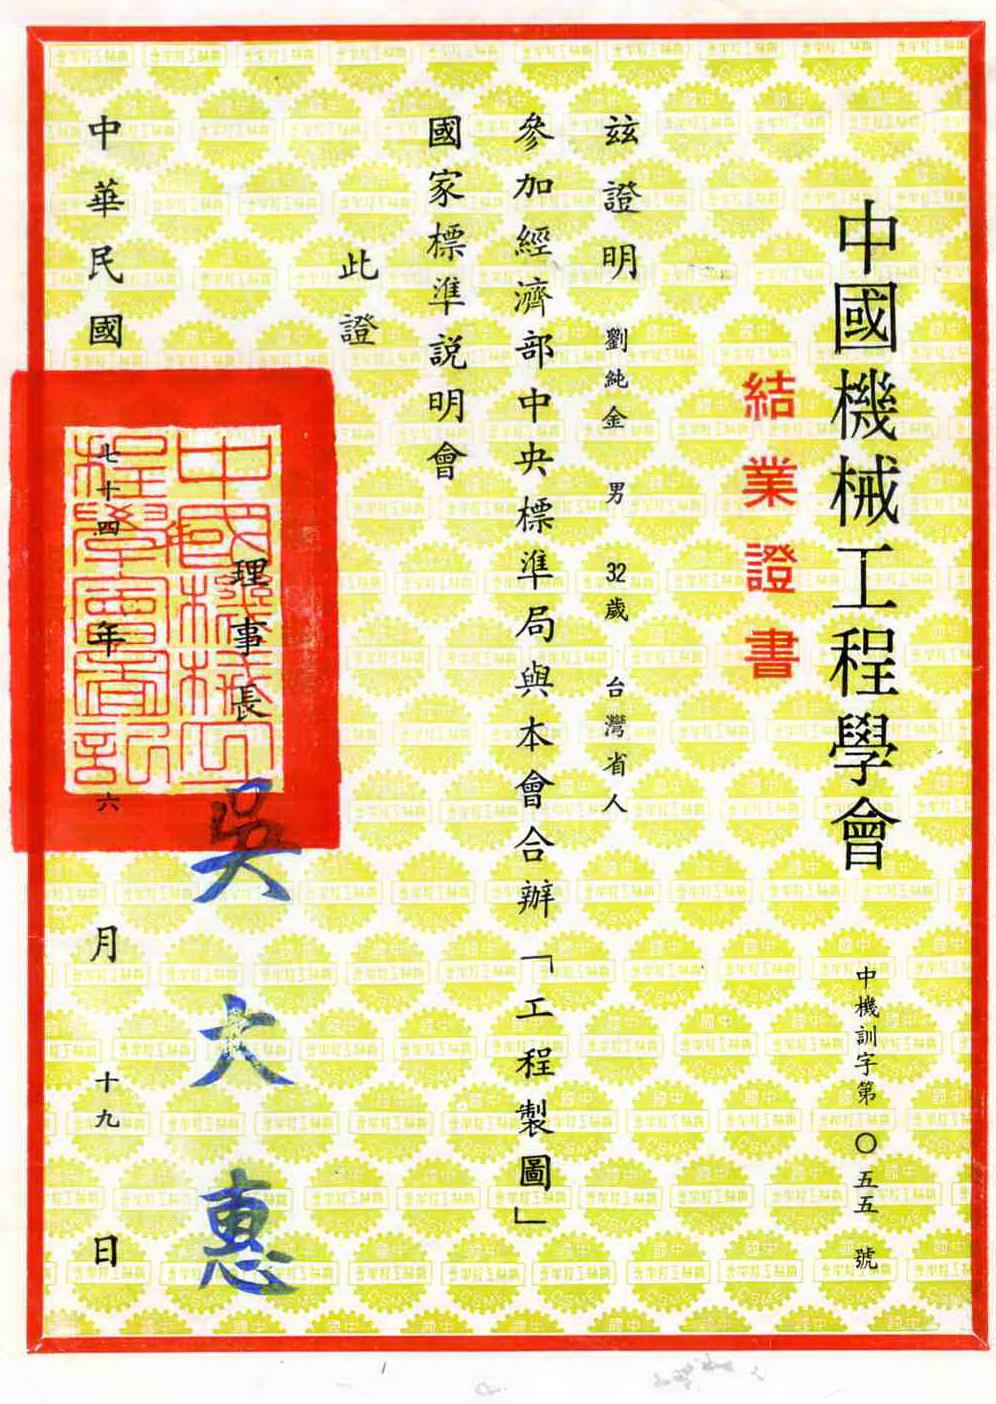 中國機械工程學會
中機訓字第〇五五號
結業證書
玆證明 劉純金 男 32歲 台灣省人
參加經濟部中央標準局與本會合辦「工程製圖」
國家標準説明會
此證
理事長 吳大惠
中華民國七十四年六月十九日
中國機械工程學會圖記
中國
機械工程學會
CSME